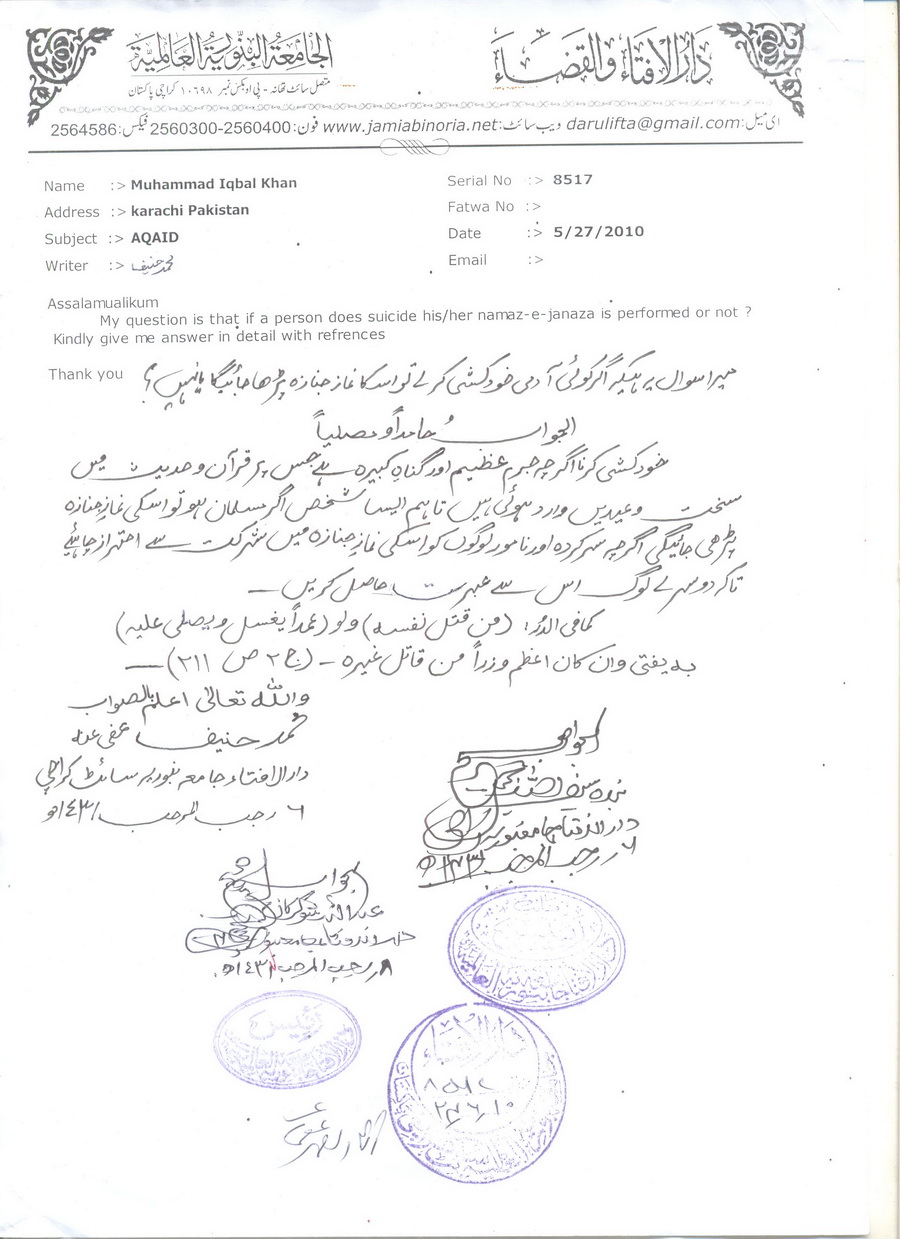 دار الافتاء والقضاء
الجامعة البنورية العالمية
متصل سائٹ تھانہ - پی او بکس نمبر ۱۰۶۹۸ کراچی پاکستان
ای میل:darulifta@gmail.com ویب سائٹ:www.jamiabinoria.net فون:2560300-2560400 فیکس:2564586
Name :> Muhammad Iqbal Khan
Address :> karachi Pakistan
Subject :> AQAID
Writer :> محمد حنیف
Serial No :> 8517
Fatwa No :>
Date :> 5/27/2010
Email :>
Assalamualikum
My question is that if a person does suicide his/her namaz-e-janaza is performed or not ?
Kindly give me answer in detail with refrences
Thank you
میرا سوال یہ ہیکہ اگر کوئی آدمی خودکشی کرلے تو اسکا نماز جنازہ پڑھا جائیگا یا نہیں؟
الجواب حامداً و مصلیاً
خودکشی کرنا اگرچہ جرم عظیم اور گناہ کبیرہ ہے جس پر قرآن و حدیث میں
سخت وعیدیں وارد ہوئی ہیں تاہم ایسا شخص اگر مسلمان ہو تو اسکی نماز جنازہ
پڑھی جائیگی اگرچہ سرکردہ اور نامور لوگوں کو اسکی نماز جنازہ میں شرکت سے احتراز چاہئیے
تاکہ دوسرے لوگ اس سے عبرت حاصل کریں۔
کما فی الدر: (من قتل نفسه) ولو (عمداً یغسل ویصلی علیه)
به یفتی وان کان اعظم وزراً من قاتل غیرہ - (ج ۲ ص ۲۱۱)
واللہ تعالیٰ اعلم بالصواب
محمد حنیف عفی عنہ
دارالافتاء جامعہ بنوریہ سائٹ کراچی
۶ رجب المرجب ۱٤۳۱ھ
الجواب صحیح
دارالافتاء جامعہ بنوریہ
۶ رجب المرجب ۱٤۳۱ھ
الجواب صحیح
دارالافتاء جامعہ بنوریہ
۸ رجب المرجب ۱٤۳۱ھ
رئیس
دار الافتاء